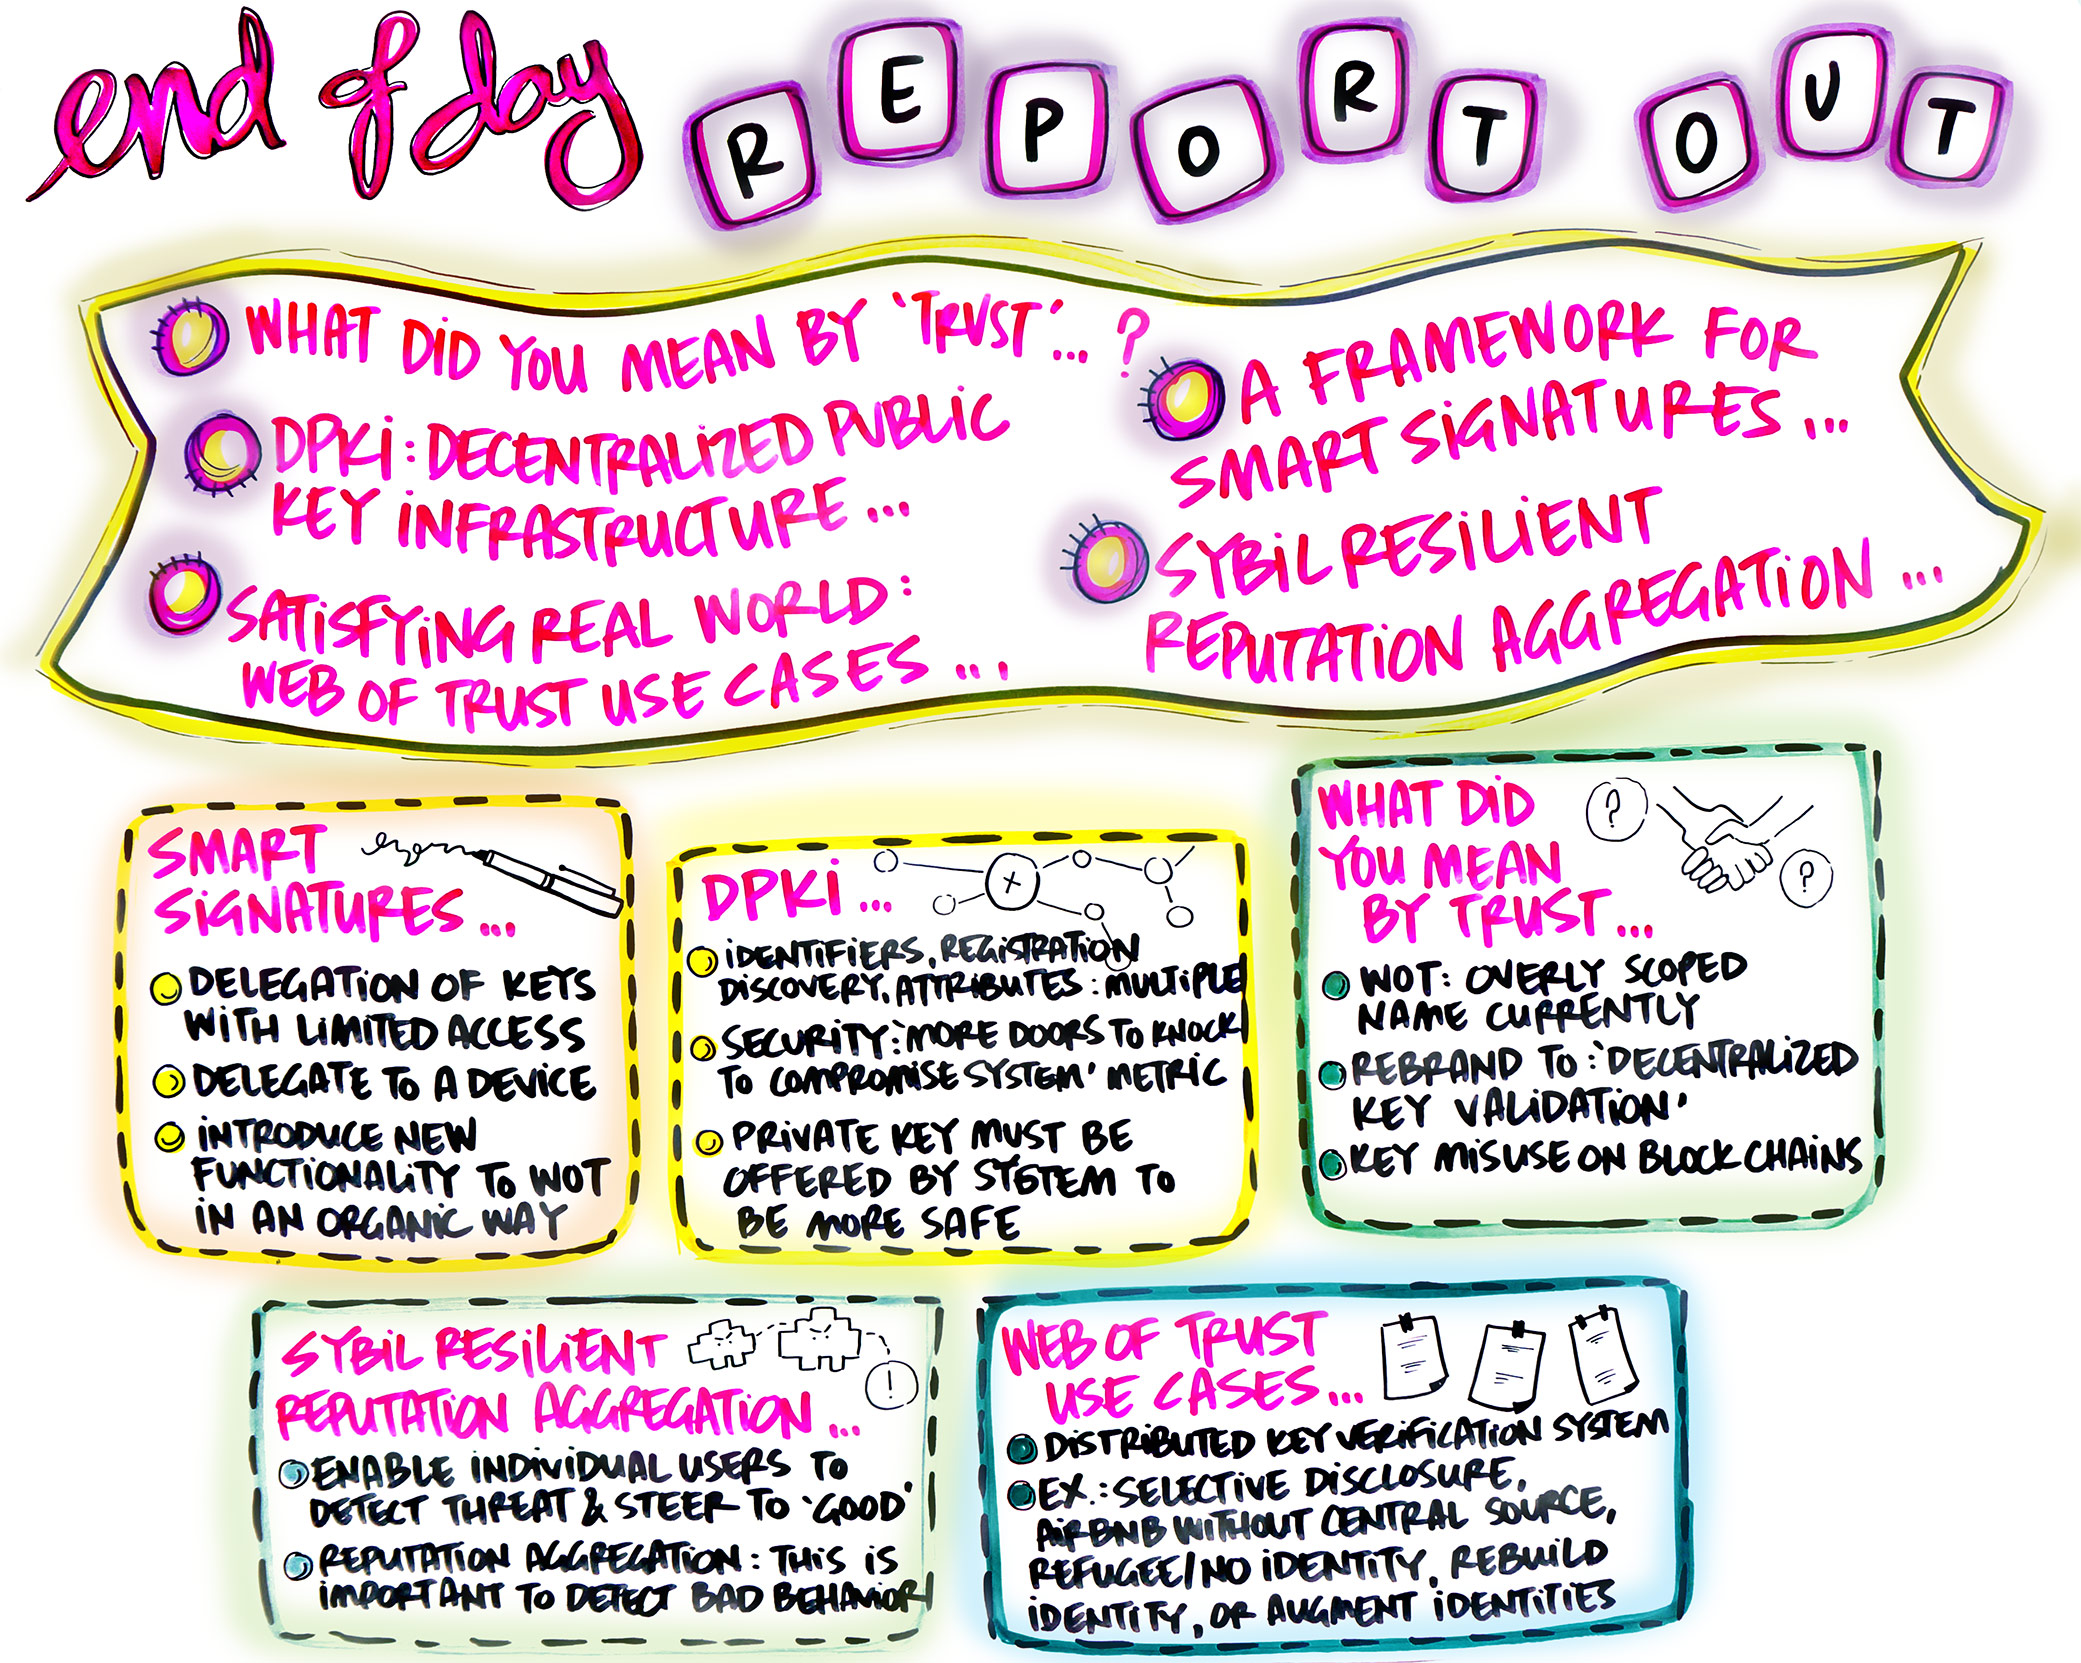 end of day REPORT OUT
WHAT DID YOU MEAN BY 'TRUST'... ?
DPKI: DECENTRALIZED PUBLIC
KEY INFRASTRUCTURE ...
SATISFYING REAL WORLD:
WEB OF TRUST USE CASES ...
A FRAMEWORK FOR
SMART SIGNATURES ...
SYBIL RESILIENT
REPUTATION AGGREGATION ...
SMART
SIGNATURES ...
DELEGATION OF KEYS
WITH LIMITED ACCESS
DELEGATE TO A DEVICE
INTRODUCE NEW
FUNCTIONALITY TO WOT
IN AN ORGANIC WAY
DPKI ...
IDENTIFIERS, REGISTRATION
DISCOVERY, ATTRIBUTES: MULTIPLE
SECURITY: 'MORE DOORS TO KNOCK
TO COMPROMISE SYSTEM' METRIC
PRIVATE KEY MUST BE
OFFERED BY SYSTEM TO
BE MORE SAFE
WHAT DID
YOU MEAN
BY TRUST ...
? ?
WOT: OVERLY SCOPED
NAME CURRENTLY
REBRAND TO: 'DECENTRALIZED
KEY VALIDATION'
KEY MISUSE ON BLOCKCHAINS
SYBIL RESILIENT
REPUTATION AGGREGATION ...
!
ENABLE INDIVIDUAL USERS TO
DETECT THREAT & STEER TO 'GOOD'
REPUTATION AGGREGATION: THIS IS
IMPORTANT TO DETECT BAD BEHAVIOR
WEB OF TRUST
USE CASES ...
DISTRIBUTED KEY VERIFICATION SYSTEM
EX.: SELECTIVE DISCLOSURE,
AIRBNB WITHOUT CENTRAL SOURCE,
REFUGEE/NO IDENTITY, REBUILD
IDENTITY, OR AUGMENT IDENTITIES